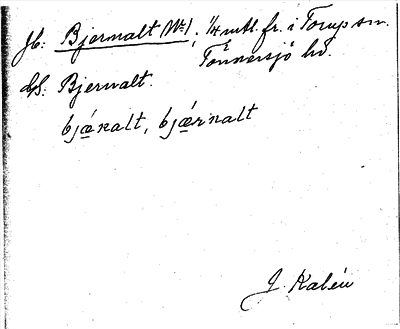 Jb: Bjermalt Nr 1, 1/4 mtl. fr. i Torup sn.
Tönnersjö hd.
GS: Bjermalt.
bjæ̱ralt, bjæ̱rnalt
J. Kalén